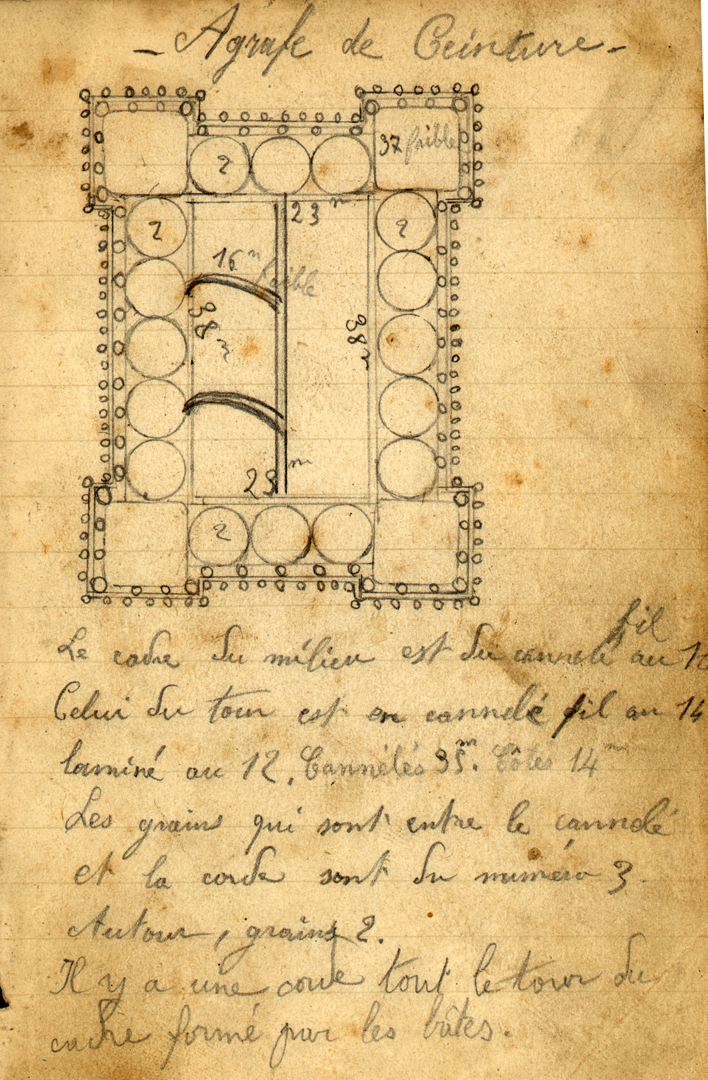 - Agrafe de Ceinture -
37 faible
2
23 m
2
2
16 m
faible
38 m
38 m
23 m
2
fil
Le cadre du milieu est du cannelé au
Celui du tour est en cannelé fil au 14
laminé au 12. Cannelés 35 m. Côtés 14 m
Les grains qui sont entre le cannelé
et la corde sont du numéro 3.
Autour, grains 2.
Il y a une corde tout le tour du
cadre formé par les bâtes.